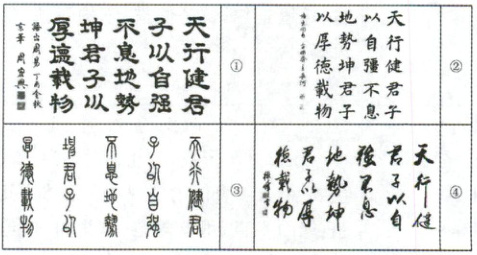 天行健君
子以自强
不息地勢
坤君子以
厚德載物
①
天行健君子
以自彊不息
地勢坤君子
以厚德載物
②
天行健君
子以自強
不息地勢
坤君子以
厚德載物
③
天行健
君子以自
強不息
地勢坤
君子以厚
德載物
④